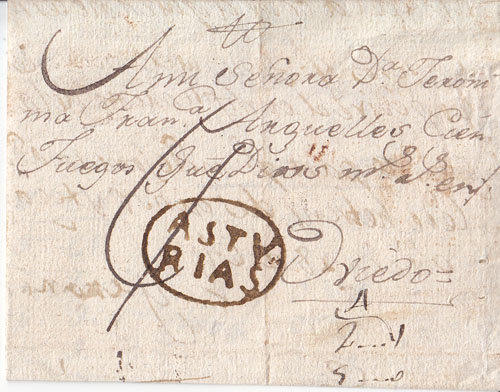 A mi Señora D.ª Jeroni
ma Fran.ca Arguelles Cien
fuegos gu.e Dios m.s a.s en
ASTU
RIAS
Oviedo =